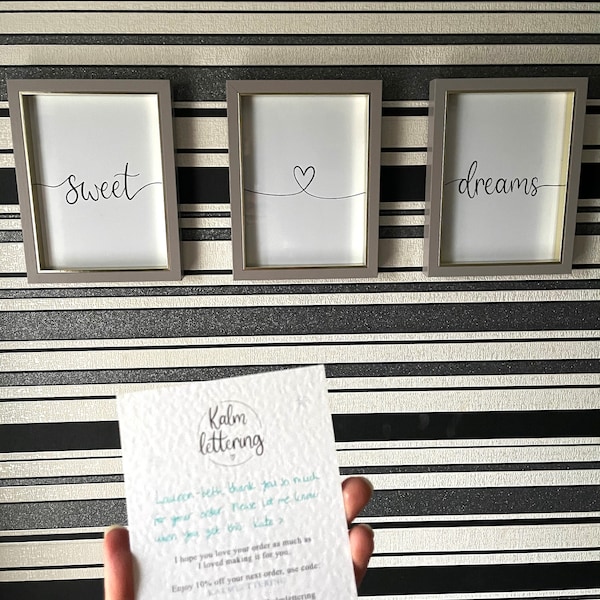 sweet
dreams
Kalm
lettering
Lauren-beth, thank you so much
for your order. Please let me know
when you get this. Kate
I hope you love your order as much as
I loved making it for you.
Enjoy 10% off your next order, use code: